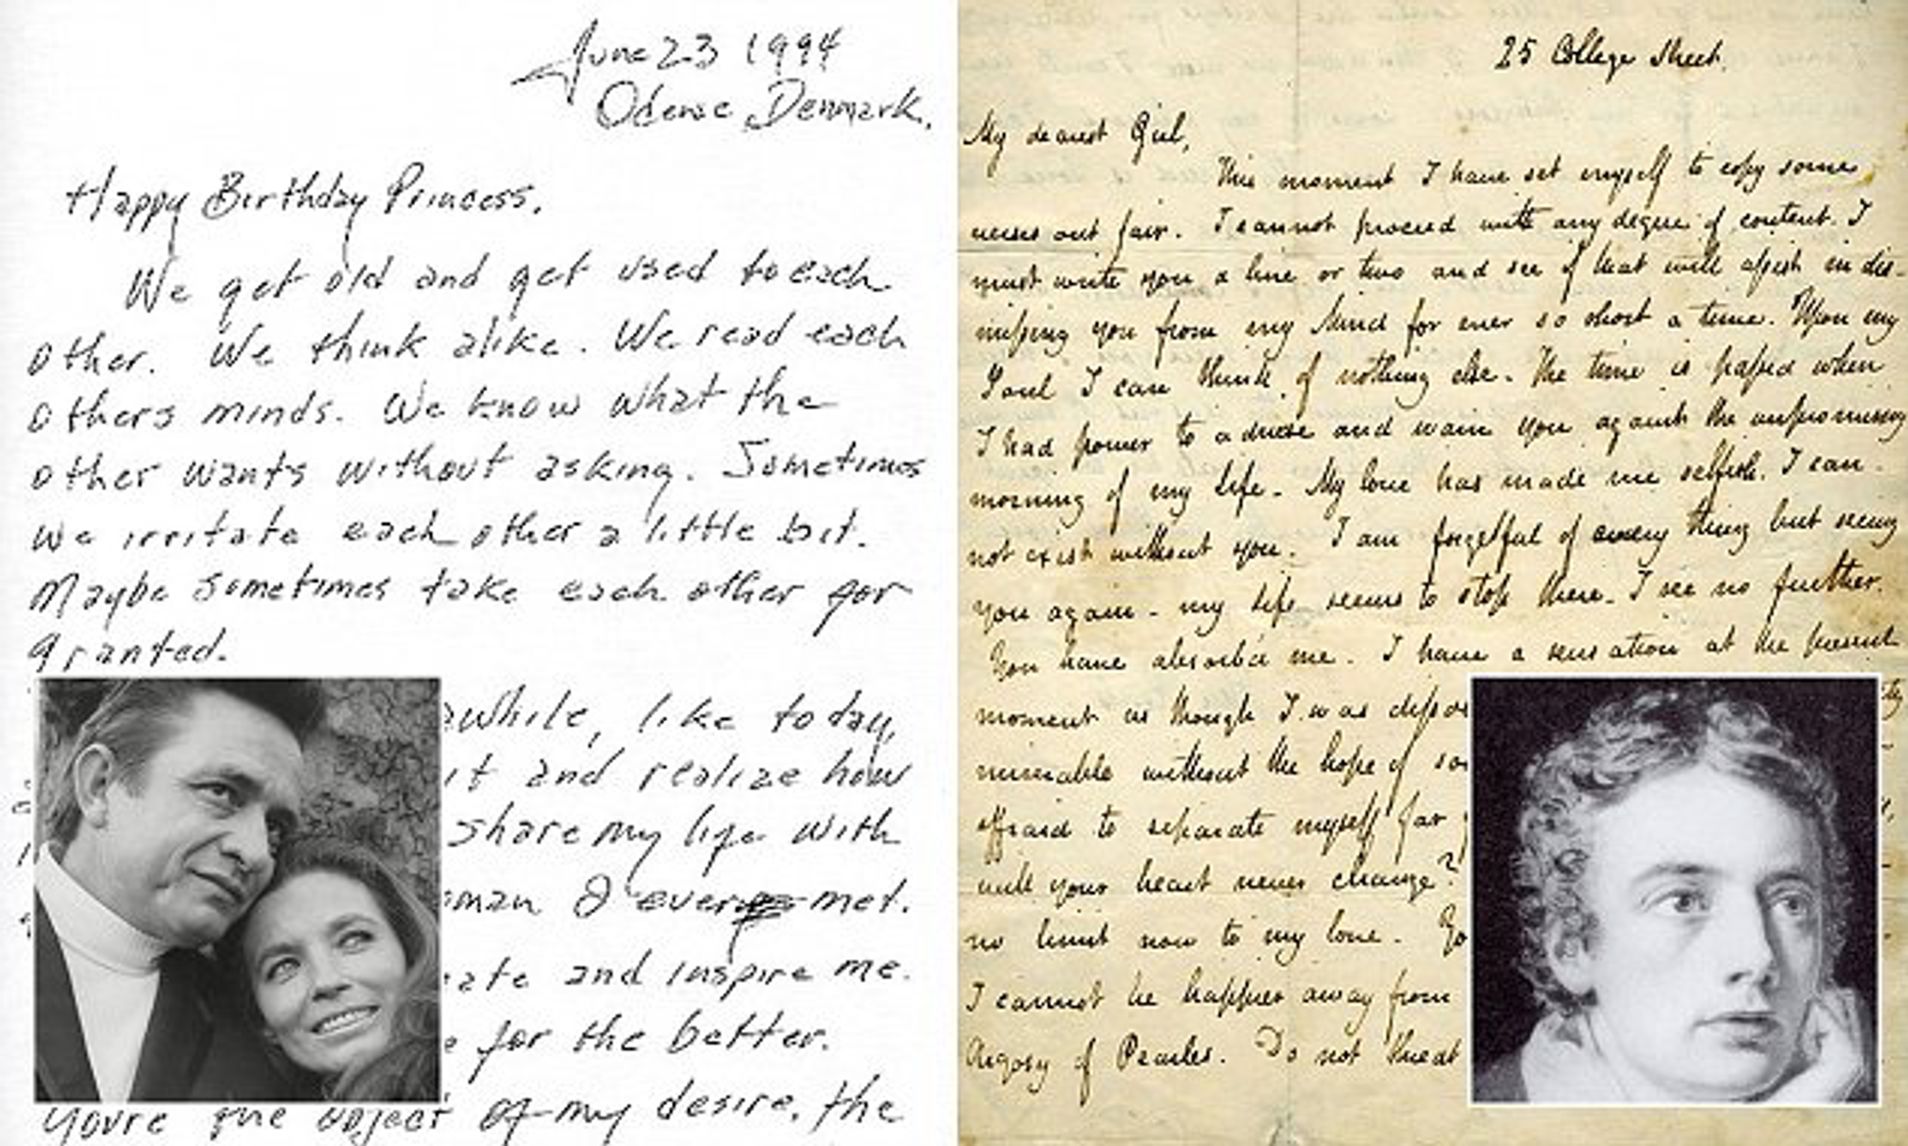 June 23 1994
Odense, Denmark.
Happy Birthday Princess.
We get old and get used to each
other. We think alike. We read each
others minds. We know what the
other wants without asking. Sometimes
we irritate each other a little bit.
Maybe sometimes take each other for
granted.
awhile, like today,
it and realize how
share my life with
man I ever met.
and inspire me.
for the better.
You're the object of my desire, the
25 College Street.
My dearest Girl,
This moment I have set myself to copy some
verses out fair. I cannot proceed with any degree of content. I
must write you a line or two and see if that will assist in dis-
missing you from my Mind for ever so short a time. Upon my
Soul I can think of nothing else - The time is passed when
I had power to advise and warn you against the unpromising
morning of my Life - My love has made me selfish. I can
not exist without you - I am forgetful of every thing but seeing
you again - my Life seems to stop there - I see no further.
You have absorb'd me. I have a sensation at the present
moment as though I was
miserable without the hope of
affraid to separate myself far
will your heart never change?
no limit now to my love -
I cannot be happier away from
Argosy of Pearles. Do not threat